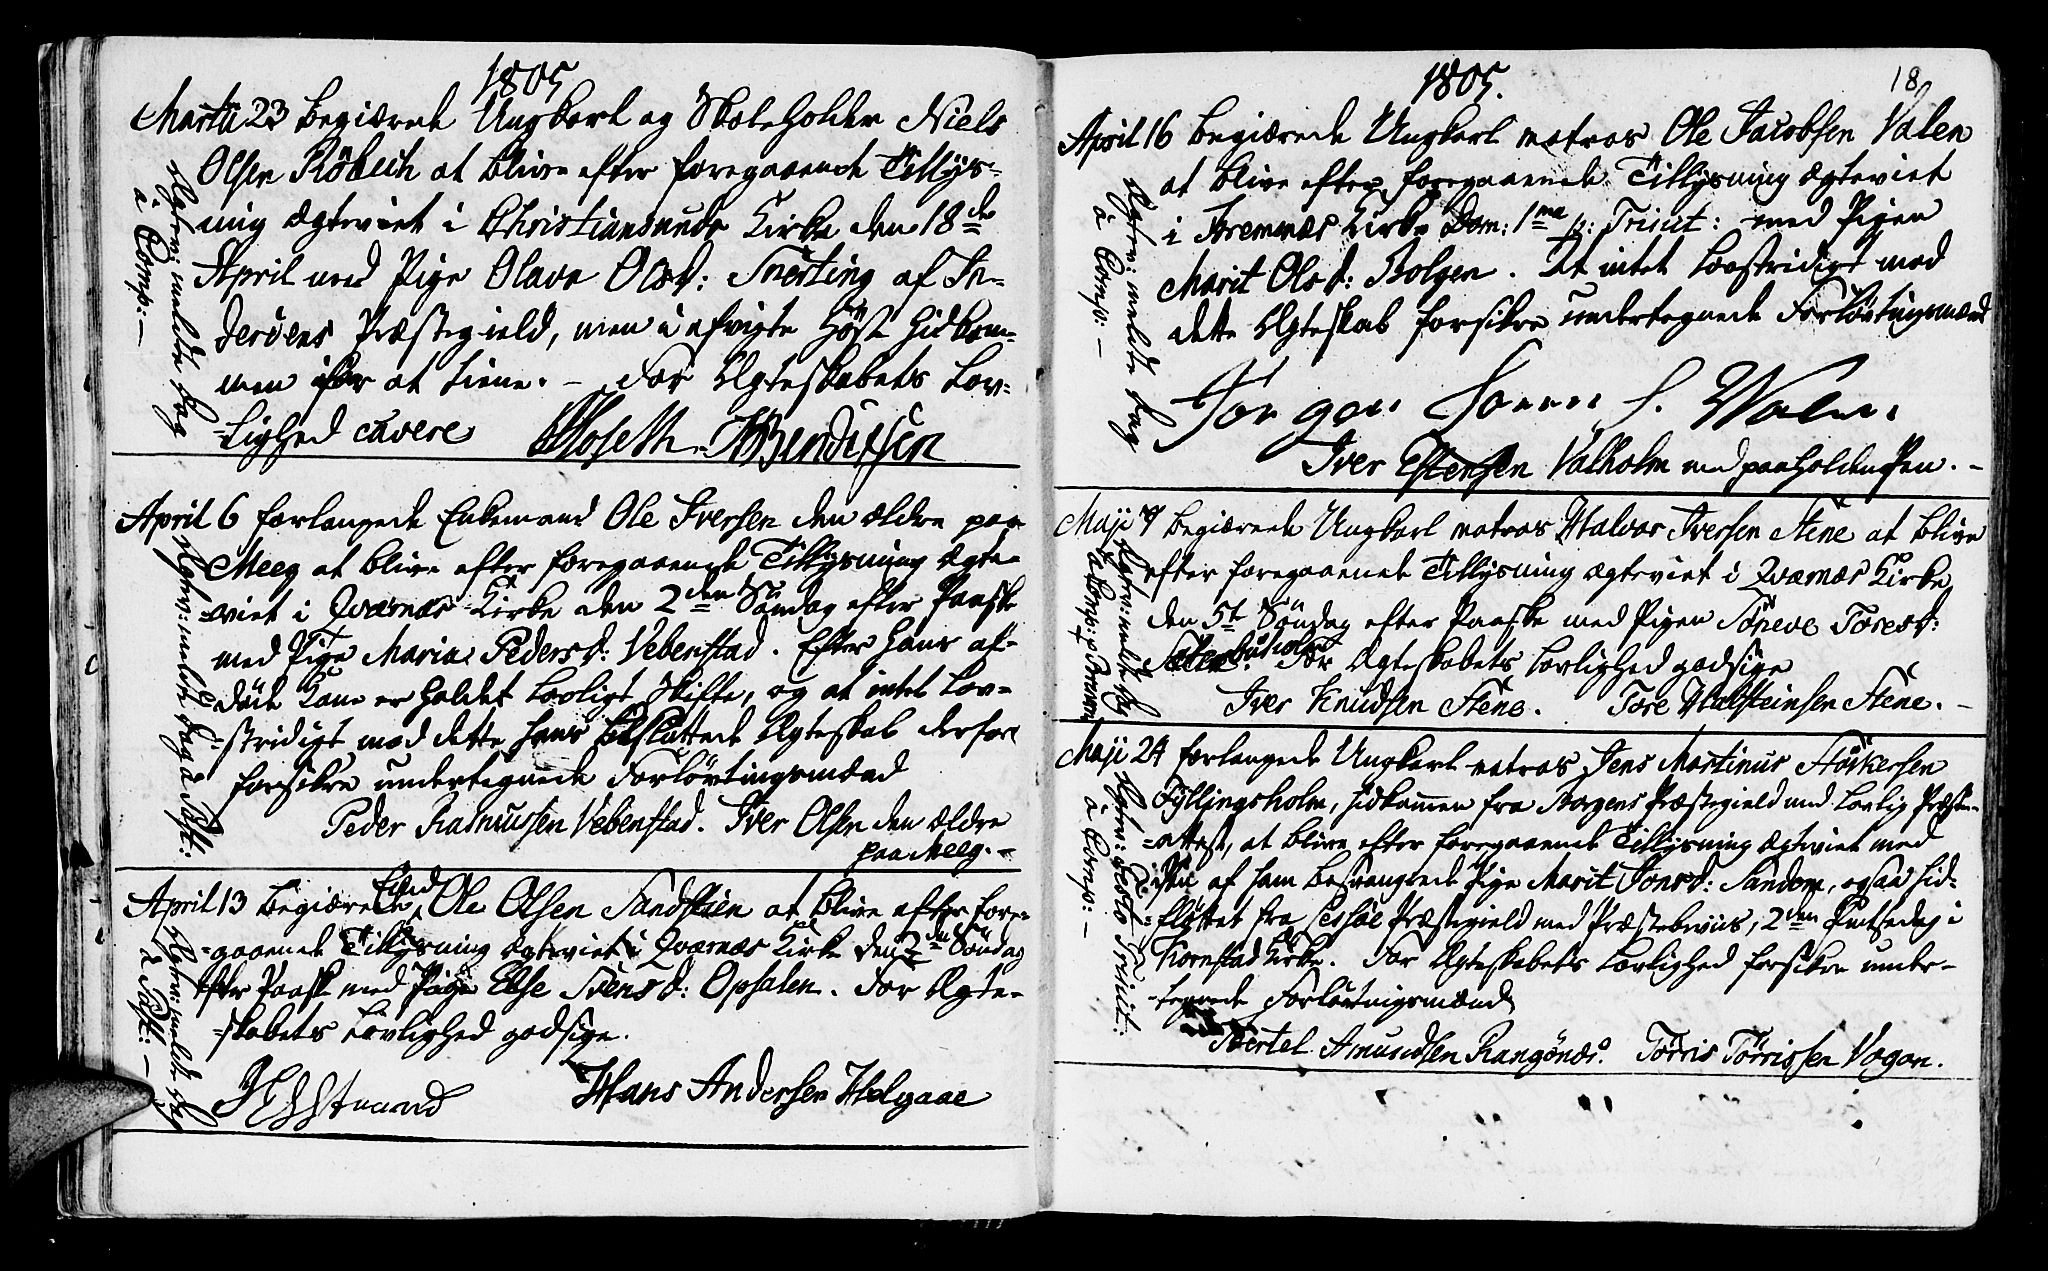 1805
Martii 23 begiærede Ungkarl og Skoleholder Niels
Olsen Röbech at blive efter foregaaende Tillys-
ning ægteviet i Christiansunds Kirke den 18de
April med Pige Olava Olsd: Snerting af In-
deröens Præstegield, men i afvigte Höst hidkom-
men for at tiene. - For Ægteskabets Lov-
=lighed cavere Hoseth HBendixsen
Ægtev: meldte Dag
à Corp: -
April 6 forlangede Enkemand Ole Iversen den ældre paa
Meeg at blive efter foregaaende Tillysning ægte-
=viet i Qværnæs Kirke den 2den Söndag efter Paaske
med Pige Maria Pedersd: Vebenstad. Efter hans af-
döde Kone er holdet lovligt Skifte, og at intet lov-
stridigt mod dette hans besluttede Ægteskab derfor
forsikre undertegnede Forlövtingsmænd
Peder Rasmussen Vebenstad. Iver Olsen den ældre
paa Meeg. -
Ægtev: meldte Dag à
April 13 begiærede Enkemd Ole Olsen Sandstien at blive efter fore-
=gaaende Tillysning ægteviet i Qværnæs Kirke den 2den Söndag
efter Paaske med Pige Else Svensd: Opsalen. For Ægte-
=skabets Lovlighed godsige.
Strand Hans Andersen Helgaae
Ægtev: meldte Dag
1805. 18
April 16 begiærede Ungkarl matros Ole Jacobsen Valen
at blive efter foregaaende Tillysning ægteviet
i Bremnæs Kirke Dom: 1me p: Trinit: med Pigen
Marit Olsd: Bolgen. At intet lovstridigt mod
dette Ægteskab forsikre undertegnede Forlövtingsmænd
Jörgen Joens S. Walen.
Iver Estensen Valholm med paaholden Pen. -
Ægtev: meldte Dag
à Corp: -
Maji 7 begiærede Ungkarl matros Halvor Iversen Stene at blive
efter foregaaende Tillysning ægteviet i Qværnæs Kirke
den 5te Söndag efter Paaske med Pigen Töneve Toresd:
For Ægteskabets Lovlighed godsige
Iver Knudsen Stene. Tore Halsteinsen Stene. -
Ægtev: meldte Dag
Maji 24 forlangede Ungkarl matros Jens Martinus Störkersen
Fyllingsholm, hidkommen fra Borgens Præstegield med lovlig Præste-
=attest, at blive efter foregaaende Tillysning ægteviet med
den af ham besvangrede Pige Marit Jonsd: Sandem, ogsaa hid-
=flyttet fra Lessöe Præstegield med Præsteberviis, 2den Pintsedag i
Kornstad Kirke. For Ægteskabets Lovlighed forsikre under-
tegnede Forlövtingsmænd
Bertel Amundsen Rangönæs. Törris Törrissen Vogan.
Ægtev: Festo Trinit:
à Corp: -